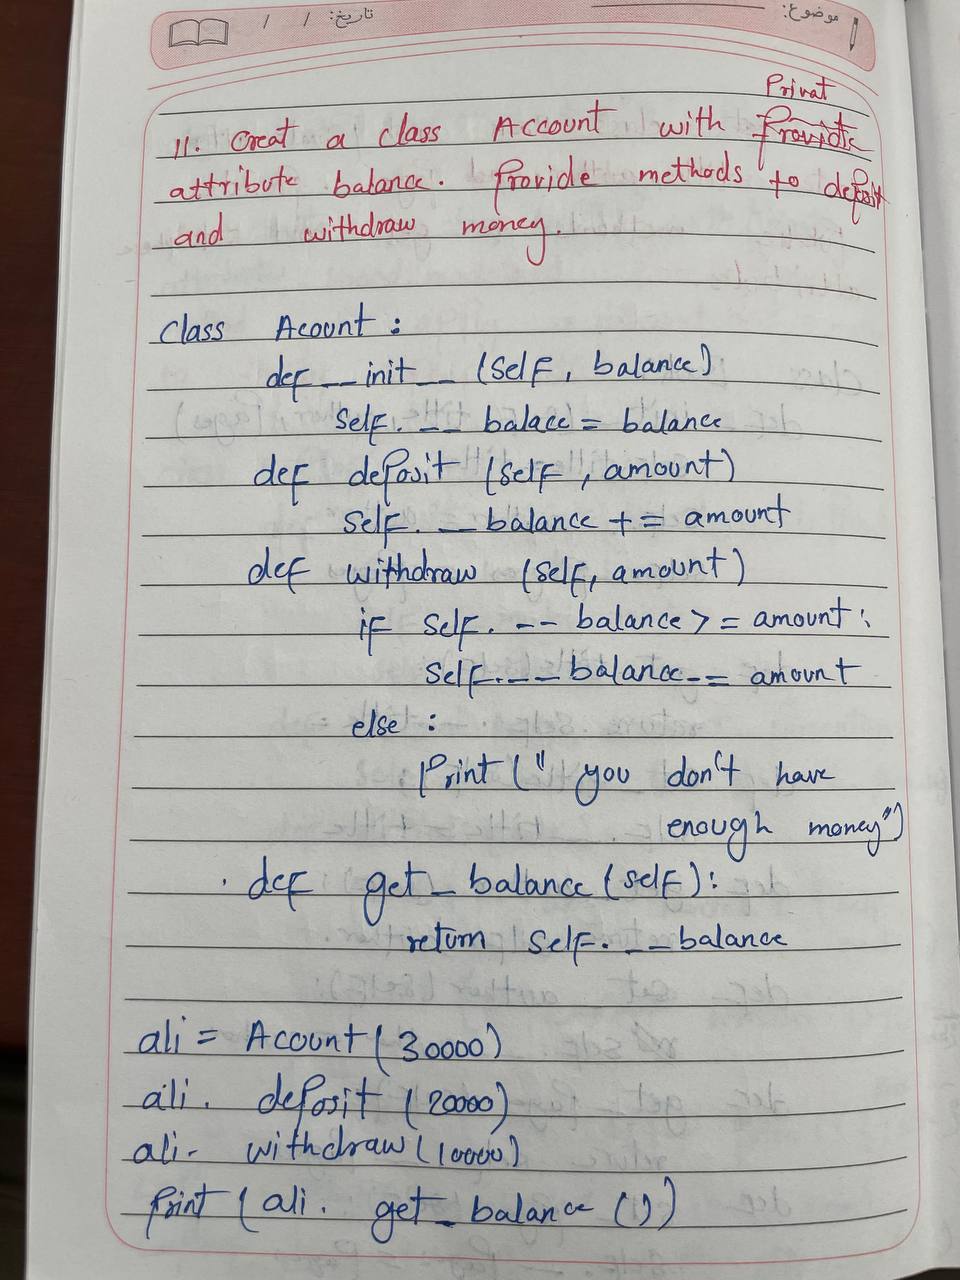 موضوع:
تاریخ: / /
Privat
11. Creat a class Account with Provide
attribute balance. Provide methods to deposit
and withdraw money.
class Acount:
def __init__ (self, balance)
self. __ balace = balance
def deposit (self, amount)
self. _ balance += amount
def withdraw (self, amount)
if self. __ balance >= amount:
self. __ balance -= amount
else:
Print (" you don't have
enough money")
def get_balance (self):
return self. __ balance
ali = Acount (30000)
ali. deposit (20000)
ali. withdraw (10000)
Print (ali. get_balance ())